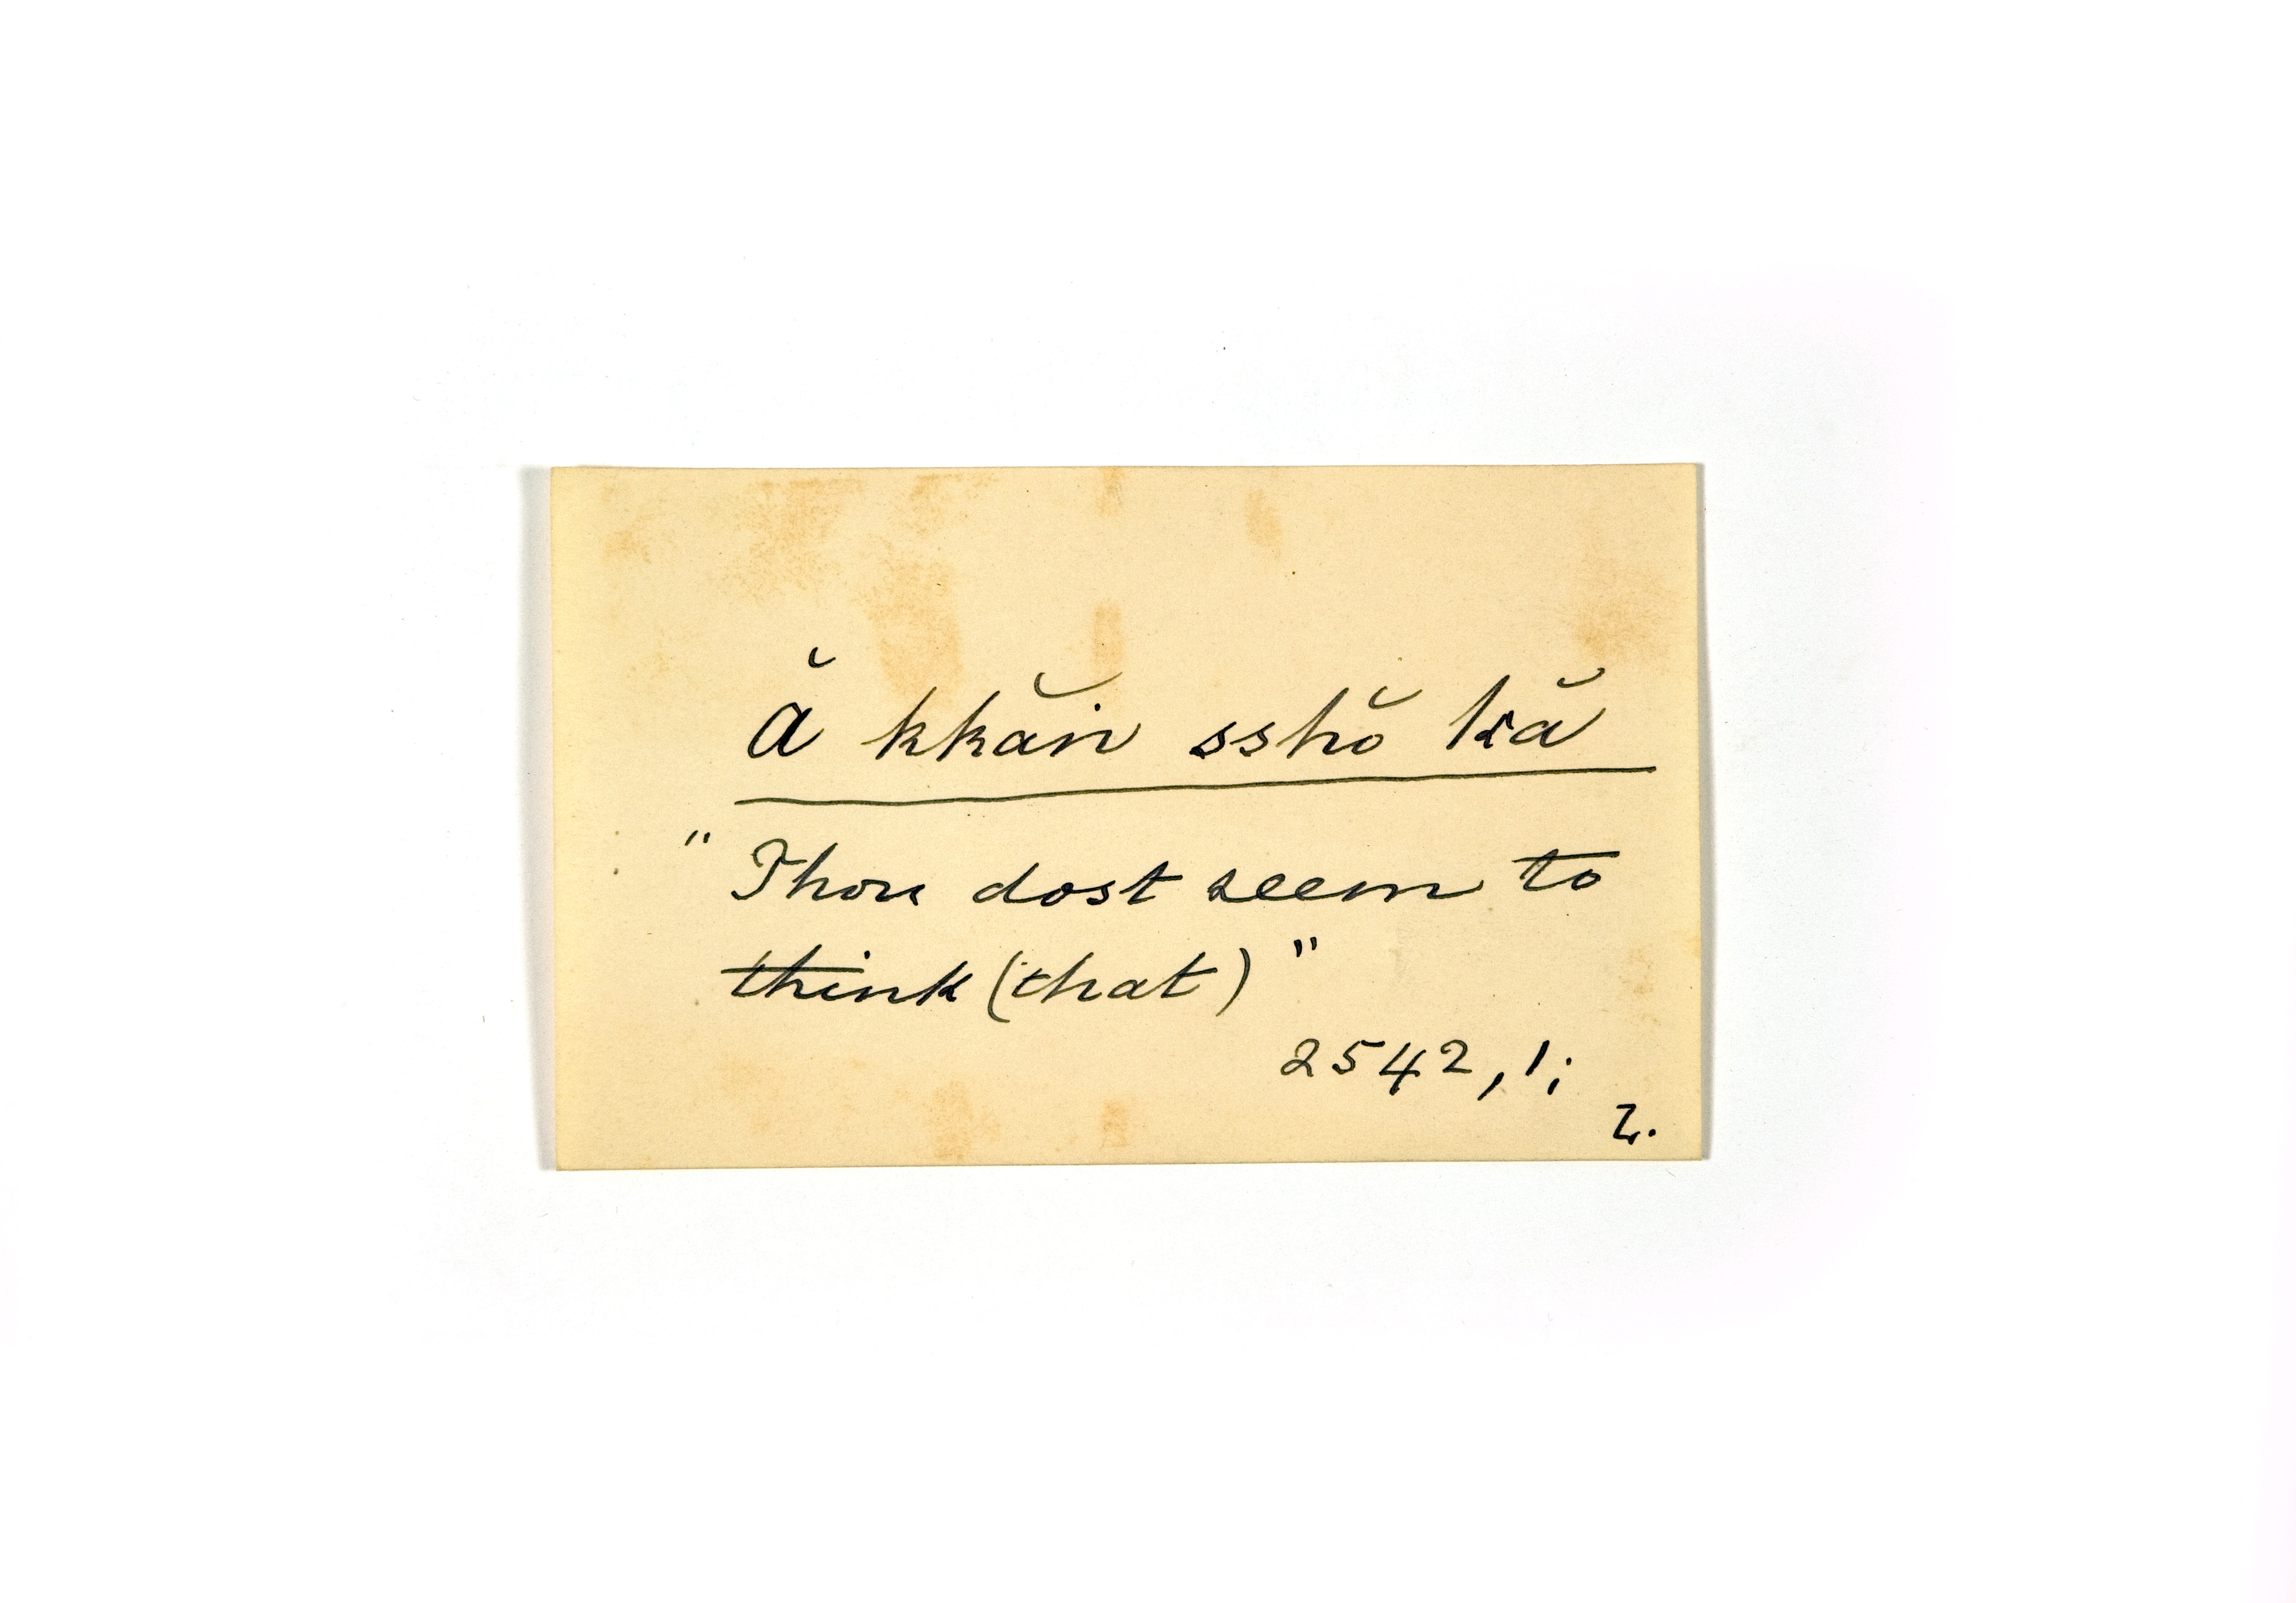 Ă kkăin sshŏ kă
" Thou dost seem to
think (that) "
2542, 1;
2.